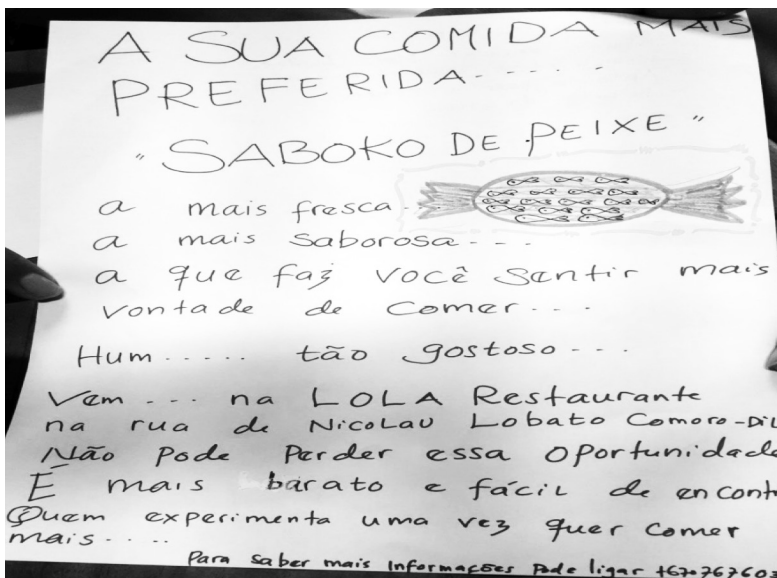 A SUA COMIDA MAIS
PREFERIDA.....
"SABOKO DE PEIXE"
a mais fresca..
a mais saborosa...
a que faz você sentir mais
vontade de comer...
Hum..... tão gostoso...
Vem... na LOLA Restaurante
na rua de Nicolau Lobato Comoro-Dil
Não Pode Perder essa oportunidade
É mais barato e fácil de encont
Quem experimenta uma vez quer comer
mais.....
Para saber mais Informações pode ligar